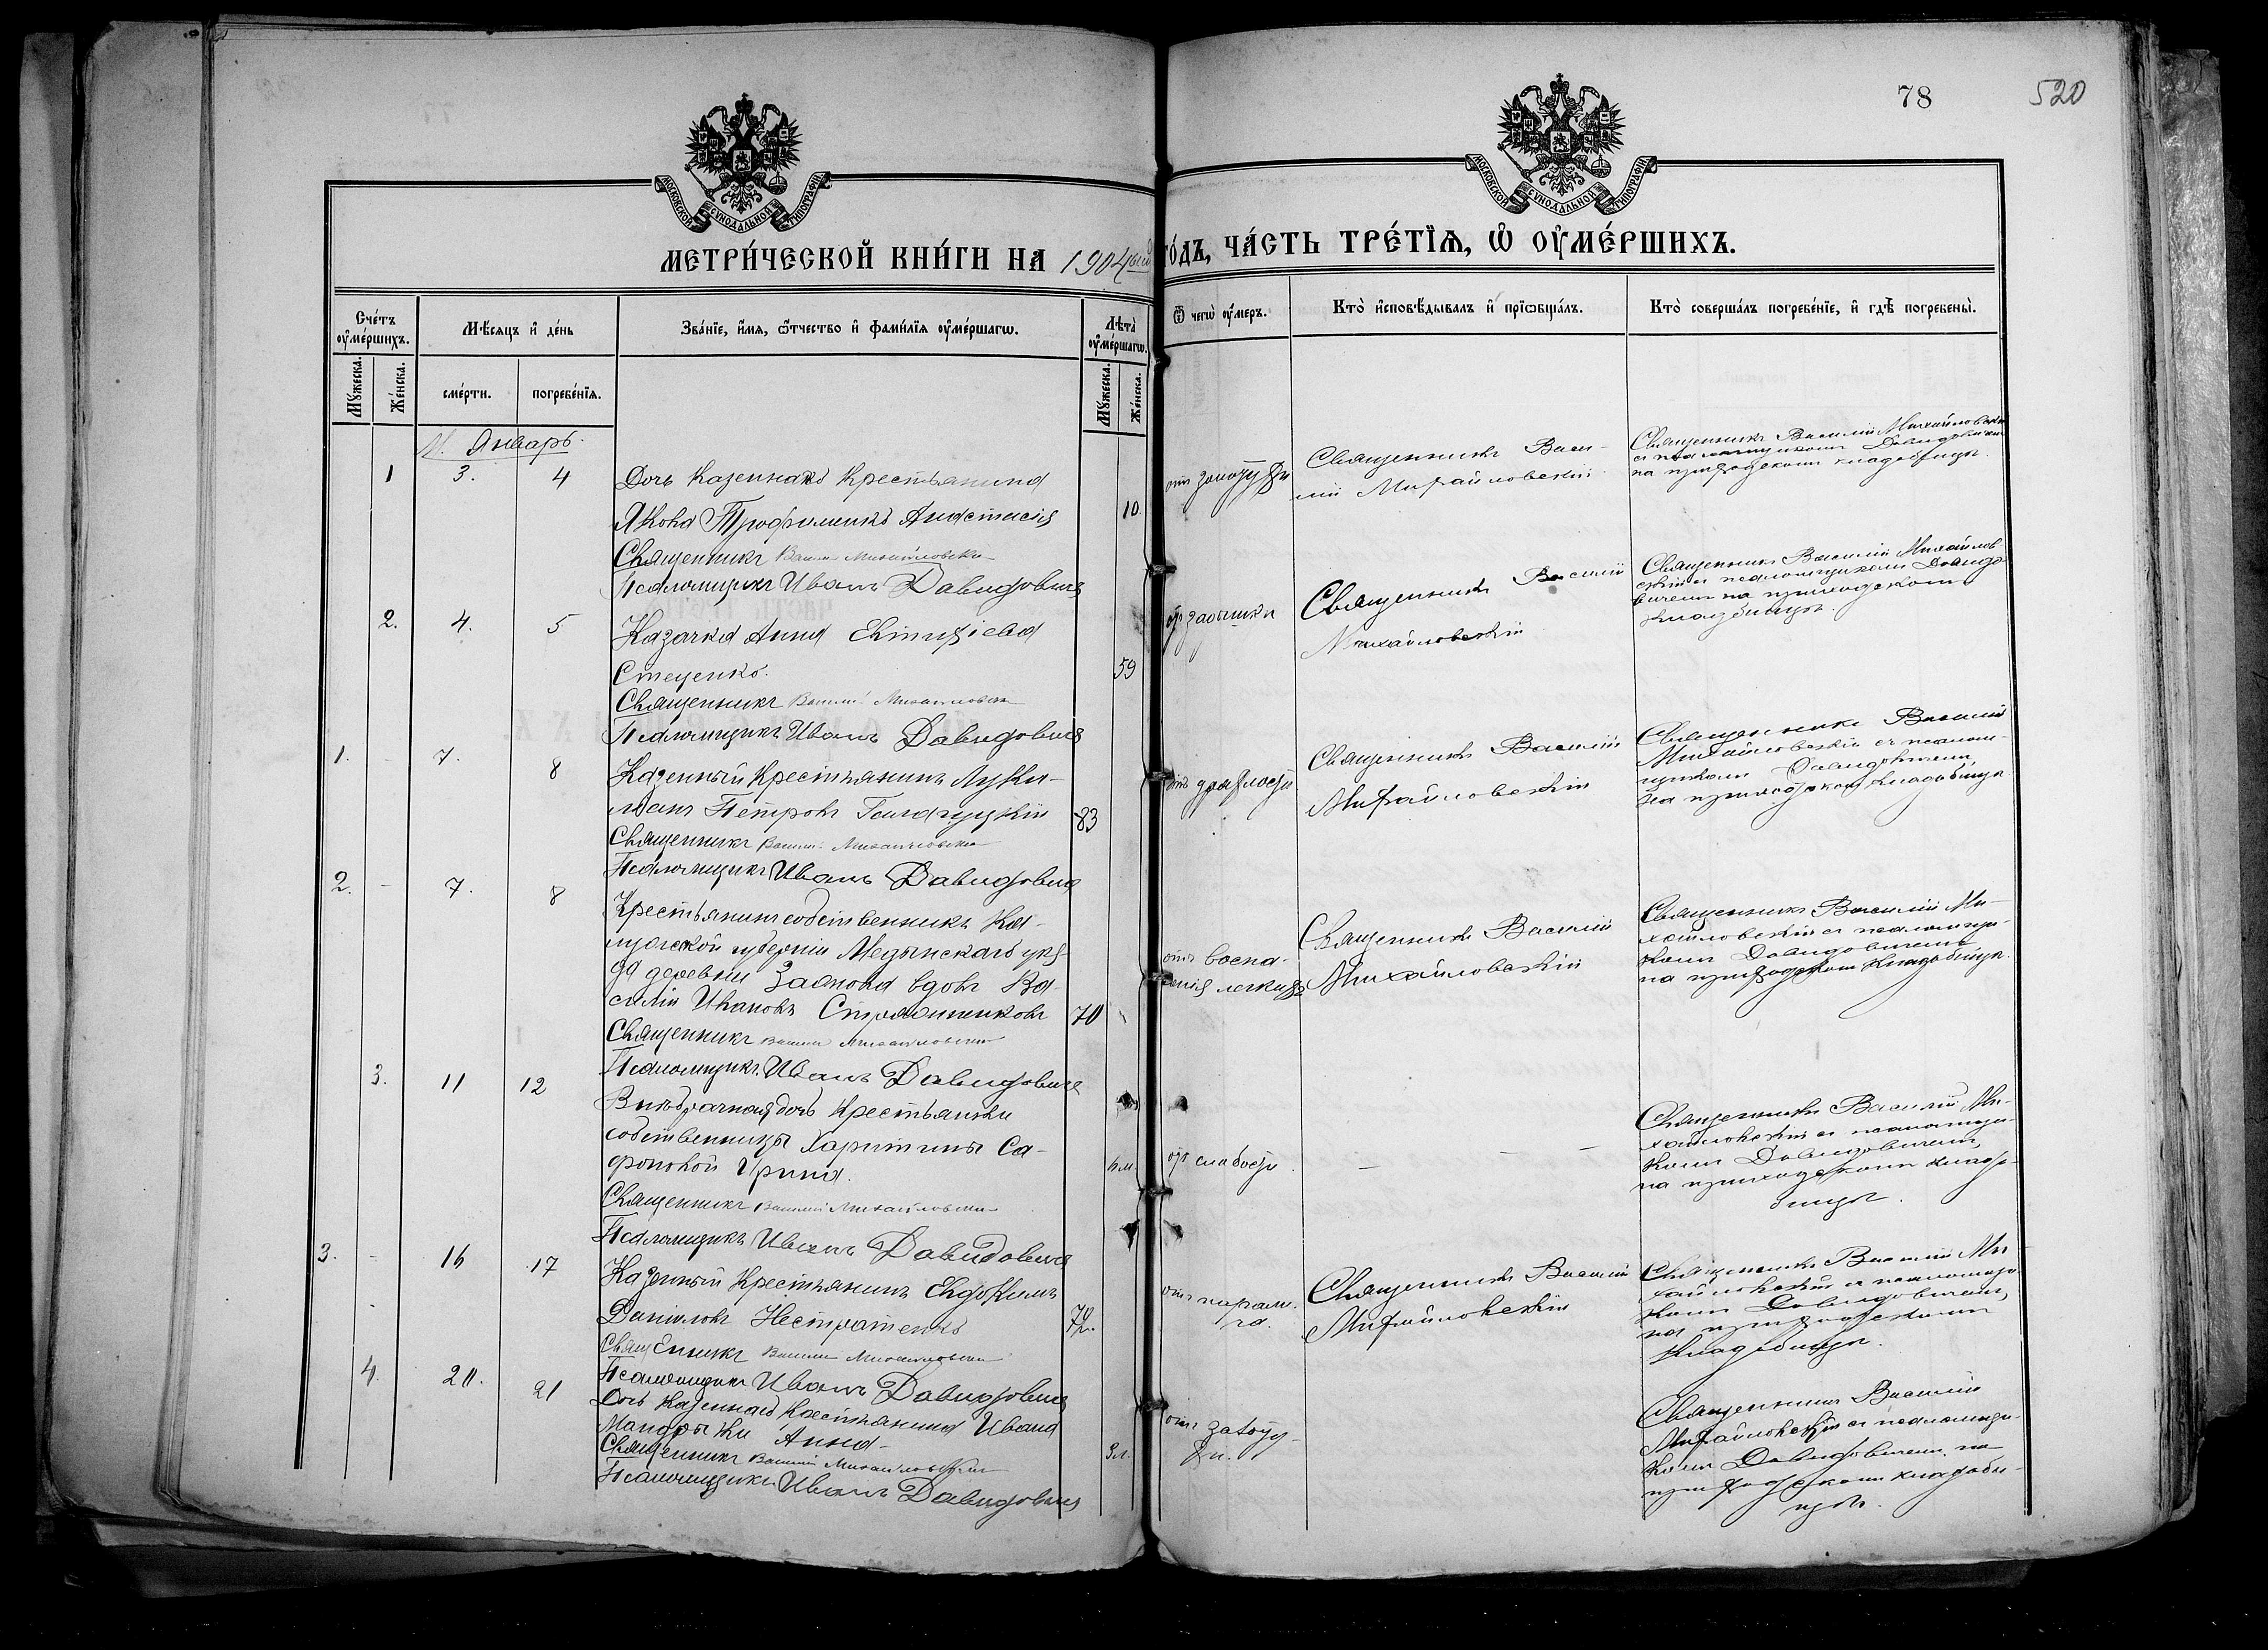 78
520
МОСКОВСКОЙ СѴНОДАЛЬНОЙ ТИПОГРАФІИ
МОСКОВСКОЙ СѴНОДАЛЬНОЙ ТИПОГРАФІИ
МЕТРИ́ЧЕСКОЙ КНИ́ГИ НА 1904ый ГО́ДЪ, ЧА́СТЬ ТРЕ́ТІѦ, Ѡ ОУ҆МЕ́РШИХЪ.
Сче́тъ оу҆ме́ршихъ.
Мꙋ́жеска.
Же́нска.
Мѣ́сяцъ и҆ де́нь
сме́рти.
погребе́нїѧ.
Зва́нїе, и҆́мѧ, ѻ҆́тчество и҆ фами́лїѧ оу҆ме́ршагѡ.
Лѣ́та оу҆ме́ршагѡ.
Мꙋ́жеска.
Же́нска.
Ѿ чегѡ̀ оу҆́меръ.
Кто̀ и҆сповѣ́дывалъ и҆ прїѡбща́лъ.
Кто̀ соверша́лъ погребе́нїе, и҆ гдѣ̀ погребены̀.
М. Январь.
1 3. 4
Дочь Казеннаго Крестьянина
Якова Трофименко Анастасія
10.
Священникъ Василій Михайловскій
Псаломщикъ Иванъ Давидовичъ
отъ золотухи
Священникъ Васи-
лій Михайловскій
Священникъ Василій Михайловскій
съ псаломщикомъ Давидовичемъ
на приходскомъ кладбищѣ.
2. 4. 5
Казачка Анна Евтихіева
Стеценко.
59
Священникъ Василій Михайловскій
Псаломщикъ Иванъ Давидовичъ
отъ задышки
Священникъ Василій
Михайловскій
Священникъ Василій Михайлов-
скій съ псаломщикомъ Давидо-
вичемъ на приходскомъ
кладбищѣ.
1. - 7. 8
Казенный Крестьянинъ Луки-
анъ Петровъ
83
Священникъ Василій Михайловскій
Псаломщикъ Иванъ Давидовичъ
отъ дряхлости
Священникъ Василій
Михайловскій
Священникъ Василій
Михайловскій съ псалом-
щикомъ Давидовичемъ,
на приходскомъ кладбищѣ
2. - 7. 8
Крестьянинъ собственникъ Ка-
лужской губерніи Медынскаго уѣз-
да деревни вдовъ Ва-
силій Ивановъ
70
Священникъ Василій Михайловскій
Псаломщикъ Иванъ Давидовичъ
отъ воспа-
ленія легкихъ
Священникъ Василій
Михайловскій
Священникъ Василій Ми-
хайловскій съ псаломщи-
комъ Давидовичемъ
на приходскомъ кладбищѣ.
3. 11 12
Внѣбрачная дочь Крестьянки
собственницы Харитины Са-
фоновой Ирина.
Священникъ Василій Михайловскій
Псаломщикъ Иванъ Давидовичъ
отъ слабости.
Священникъ Василій Ми-
хайловскій съ псаломщи-
комъ Давидовичемъ,
на приходскомъ клад-
бищѣ.
3. - 16 17
Казенный Крестьянинъ Евдокимъ
Даніиловъ Нестратенко
72.
Священникъ Василій Михайловскій
Псаломщикъ Иванъ Давидовичъ
отъ
Священникъ Василій
Михайловскій
Священникъ Василій Ми-
хайловскій съ псаломщи-
комъ Давидовичемъ,
на приходскомъ
кладбищѣ.
4. 20. 21
Дочь Казеннаго Крестьянина Ивана
Мандрыки Анна
Священникъ Василій Михайловскій
Псаломщикъ Иванъ Давидовичъ
отъ
Священникъ Василій
Михайловскій съ псаломщи-
комъ Давидовичемъ на
приходскомъ кладби-
щѣ.